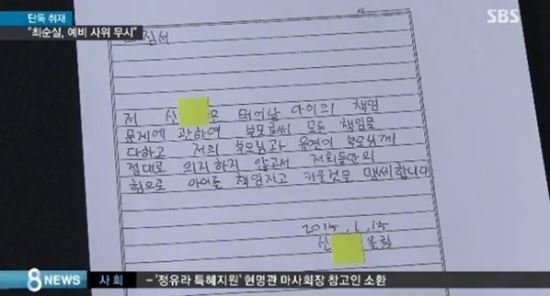 단독 취재
SBS
"최순실, 예비 사위 무시"
다짐서
저 신 모 태어날 아이의 책임
문제에 관하여 부모로써 모든 책임을
다하고 저의 부모님과 유연이 부모님께
절대로 의지하지 않고서 저희들만의
힘으로 아이를 책임지고 키울것을 맹씨합니다
2015. 1. 15
신 올림
8 NEWS 사 회 - '정유라 특혜지원' 현명관 마사회장 참고인 소환